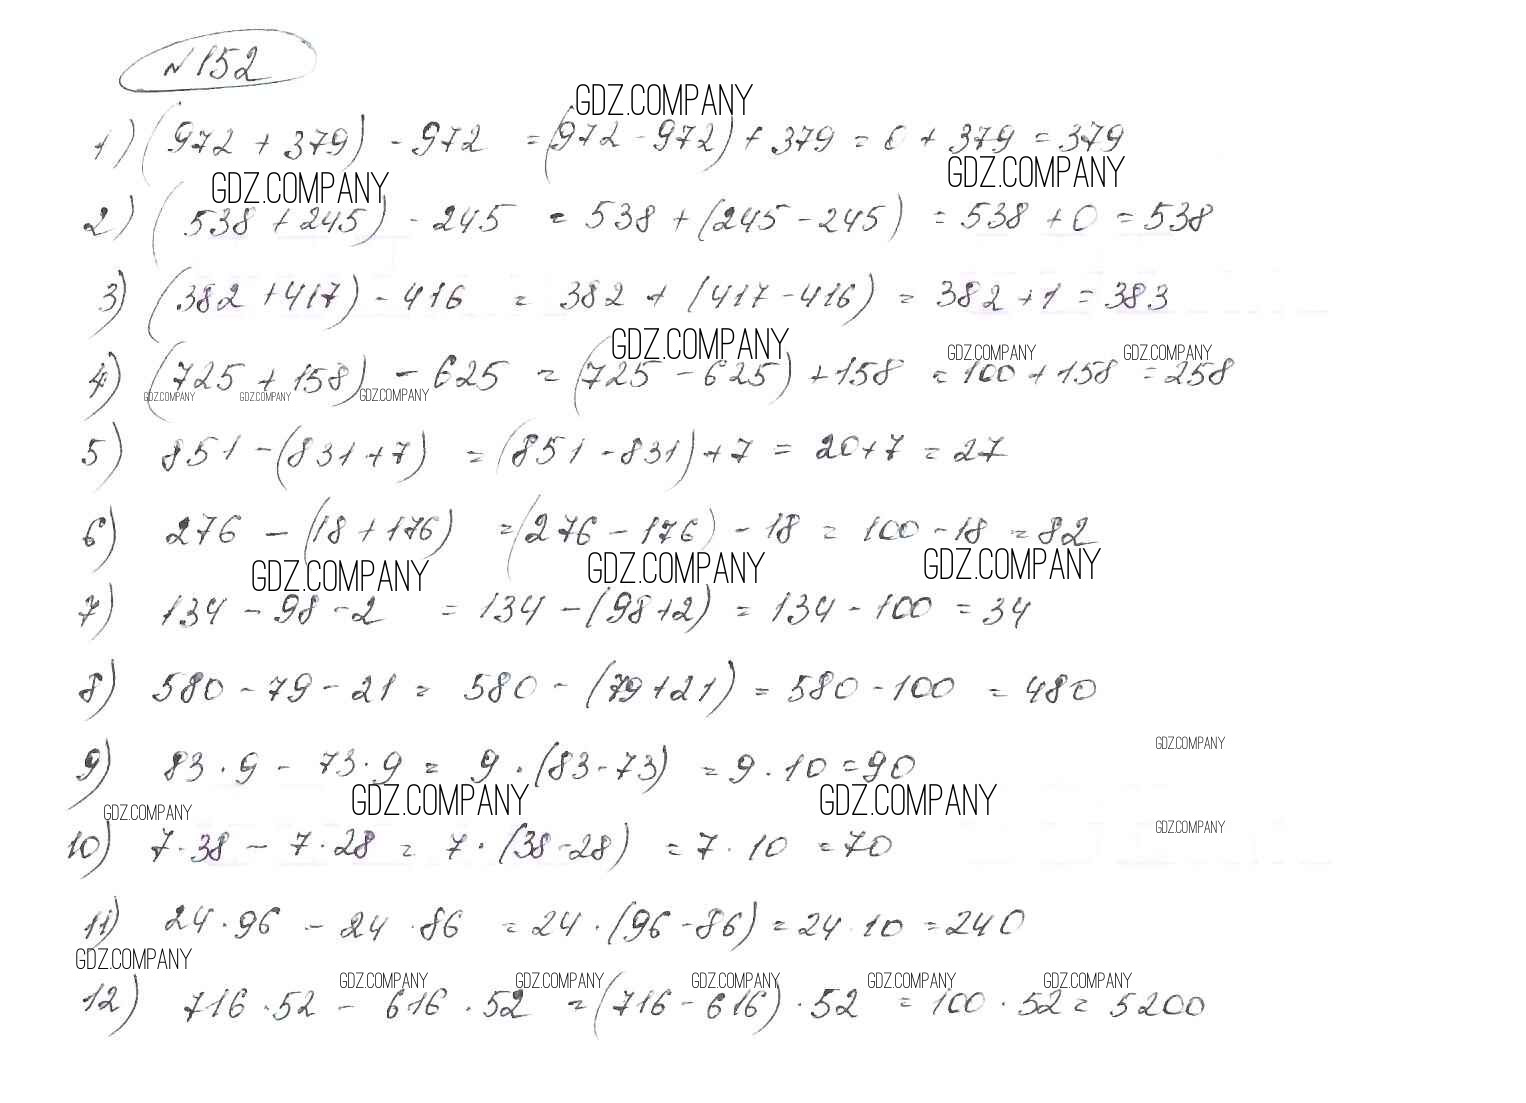 №152
GDZ.COMPANY
1) (972 + 379) - 972 = (972 - 972) + 379 = 0 + 379 = 379
GDZ.COMPANY GDZ.COMPANY
2) (538 + 245) - 245 = 538 + (245 - 245) = 538 + 0 = 538
3) (382 + 417) - 416 = 382 + (417 - 416) = 382 + 1 = 383
GDZ.COMPANY GDZ.COMPANY GDZ.COMPANY
4) (725 + 158) - 625 = (725 - 625) + 158 = 100 + 158 = 258
GDZ.COMPANY GDZ.COMPANY GDZ.COMPANY
5) 851 - (831 + 7) = (851 - 831) + 7 = 20 + 7 = 27
6) 276 - (18 + 176) = (276 - 176) - 18 = 100 - 18 = 82
GDZ.COMPANY GDZ.COMPANY GDZ.COMPANY
7) 134 - 98 - 2 = 134 - (98 + 2) = 134 - 100 = 34
8) 580 - 79 - 21 = 580 - (79 + 21) = 580 - 100 = 480
GDZ.COMPANY
9) 83 · 9 - 73 · 9 = 9 · (83 - 73) = 9 · 10 = 90
GDZ.COMPANY GDZ.COMPANY GDZ.COMPANY GDZ.COMPANY
10) 7 · 38 - 7 · 28 = 7 · (38 - 28) = 7 · 10 = 70
11) 24 · 96 - 24 · 86 = 24 · (96 - 86) = 24 · 10 = 240
GDZ.COMPANY
GDZ.COMPANY GDZ.COMPANY GDZ.COMPANY GDZ.COMPANY GDZ.COMPANY
12) 716 · 52 - 616 · 52 = (716 - 616) · 52 = 100 · 52 = 5200